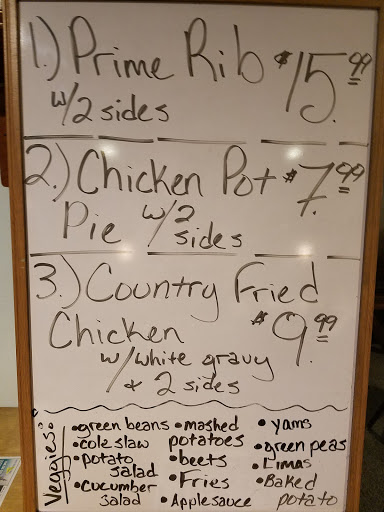 1.) Prime Rib $15.99
w/2 sides
2.) Chicken Pot $7.99
Pie w/2 sides
3.) Country Fried
Chicken $9.99
w/white gravy
& 2 sides
Veggies:
•green beans
•coleslaw
•potato salad
•cucumber salad
•mashed potatoes
•beets
•Fries
•Applesauce
•yams
•green peas
•Limas
•Baked potato